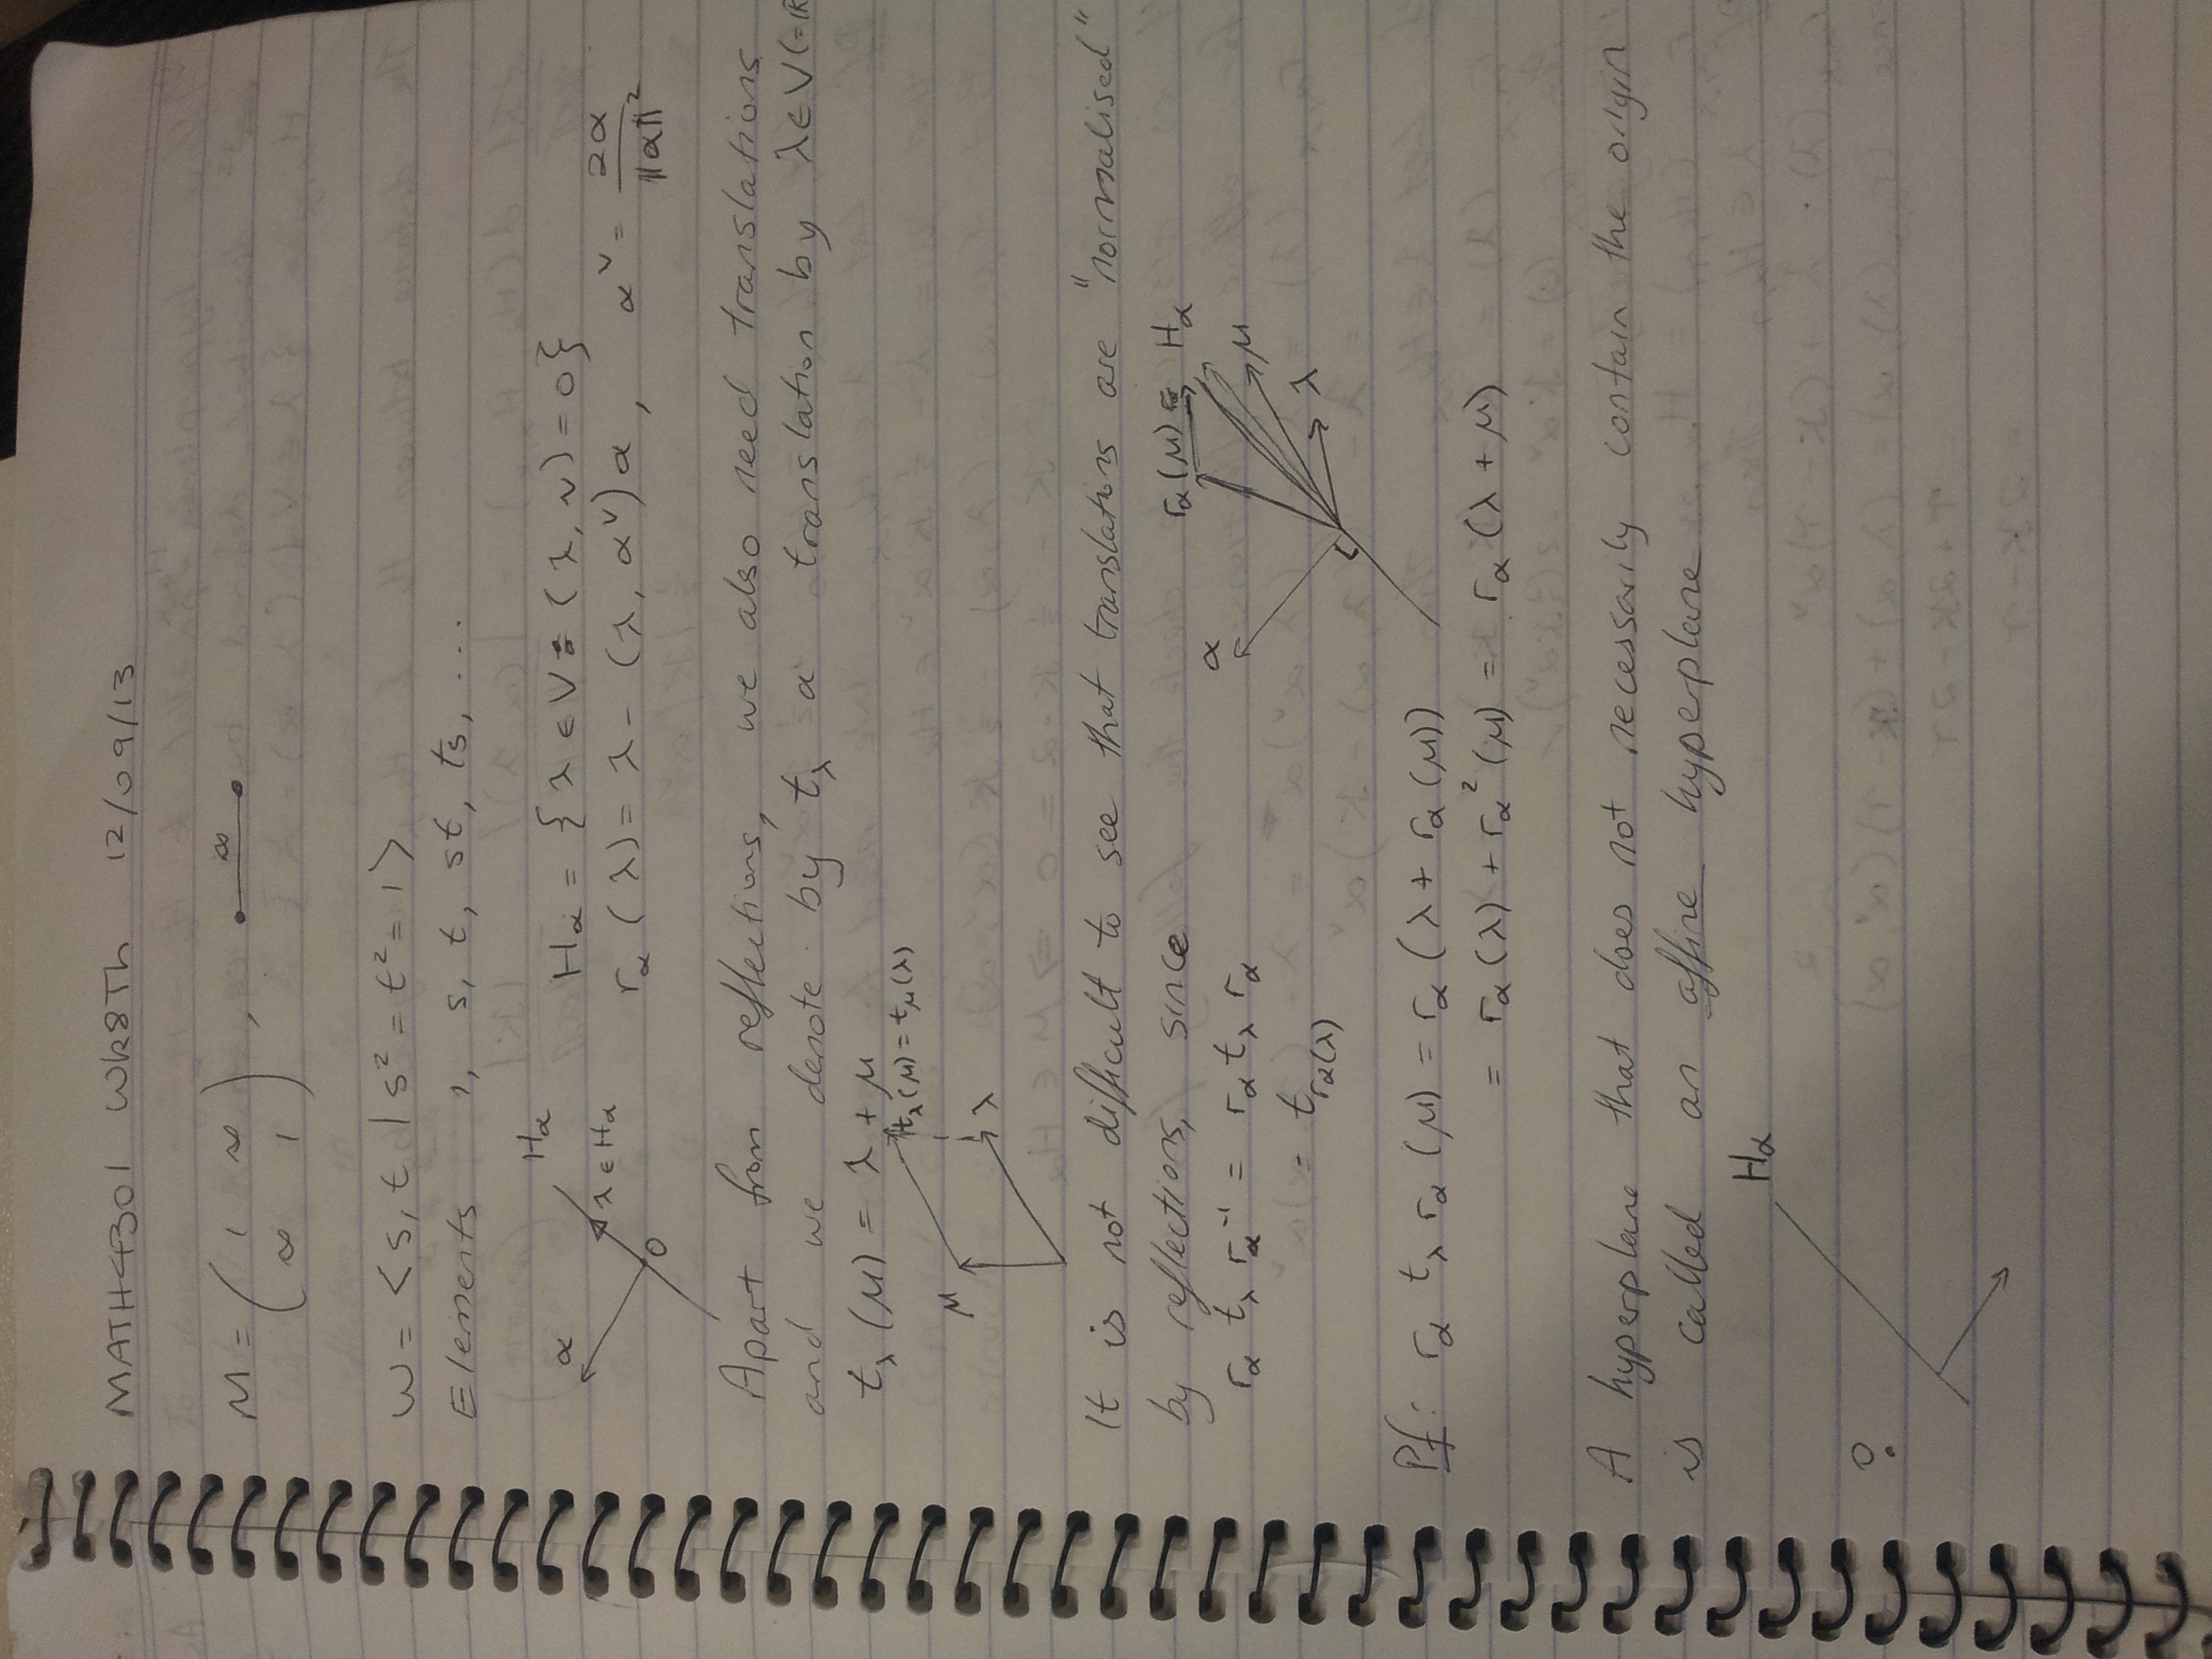 MATH4301 Wk8Th 12/09/13
M = ( 1 ∞
∞ 1 ) , ∞
W = < s, t | s² = t² = 1 >
Elements 1, s, t, st, ts, ...
Hα
α
λ ∈ Hα
0
Hα = { λ ∈ V : (λ, v) = 0 }
rα (λ) = λ - (λ, α^v) α , α^v = 2α / ||α||²
Apart from reflections, we also need translations
and we denote by t_λ a translation by λ ∈ V (= ℝ
t_λ (μ) = λ + μ
t_λ (μ) = t_μ (λ)
μ
λ
It is not difficult to see that translations are "normalised"
by reflections, since
rα t_λ rα⁻¹ = rα t_λ rα
= t_rα(λ)
rα (μ) = Hα
α
μ
λ
Pf: rα t_λ rα (μ) = rα (λ + rα (μ))
= rα (λ) + rα² (μ) = rα (λ + μ)
A hyperplane that does not necessarily contain the origin
is called an affine hyperplane
Hα
0